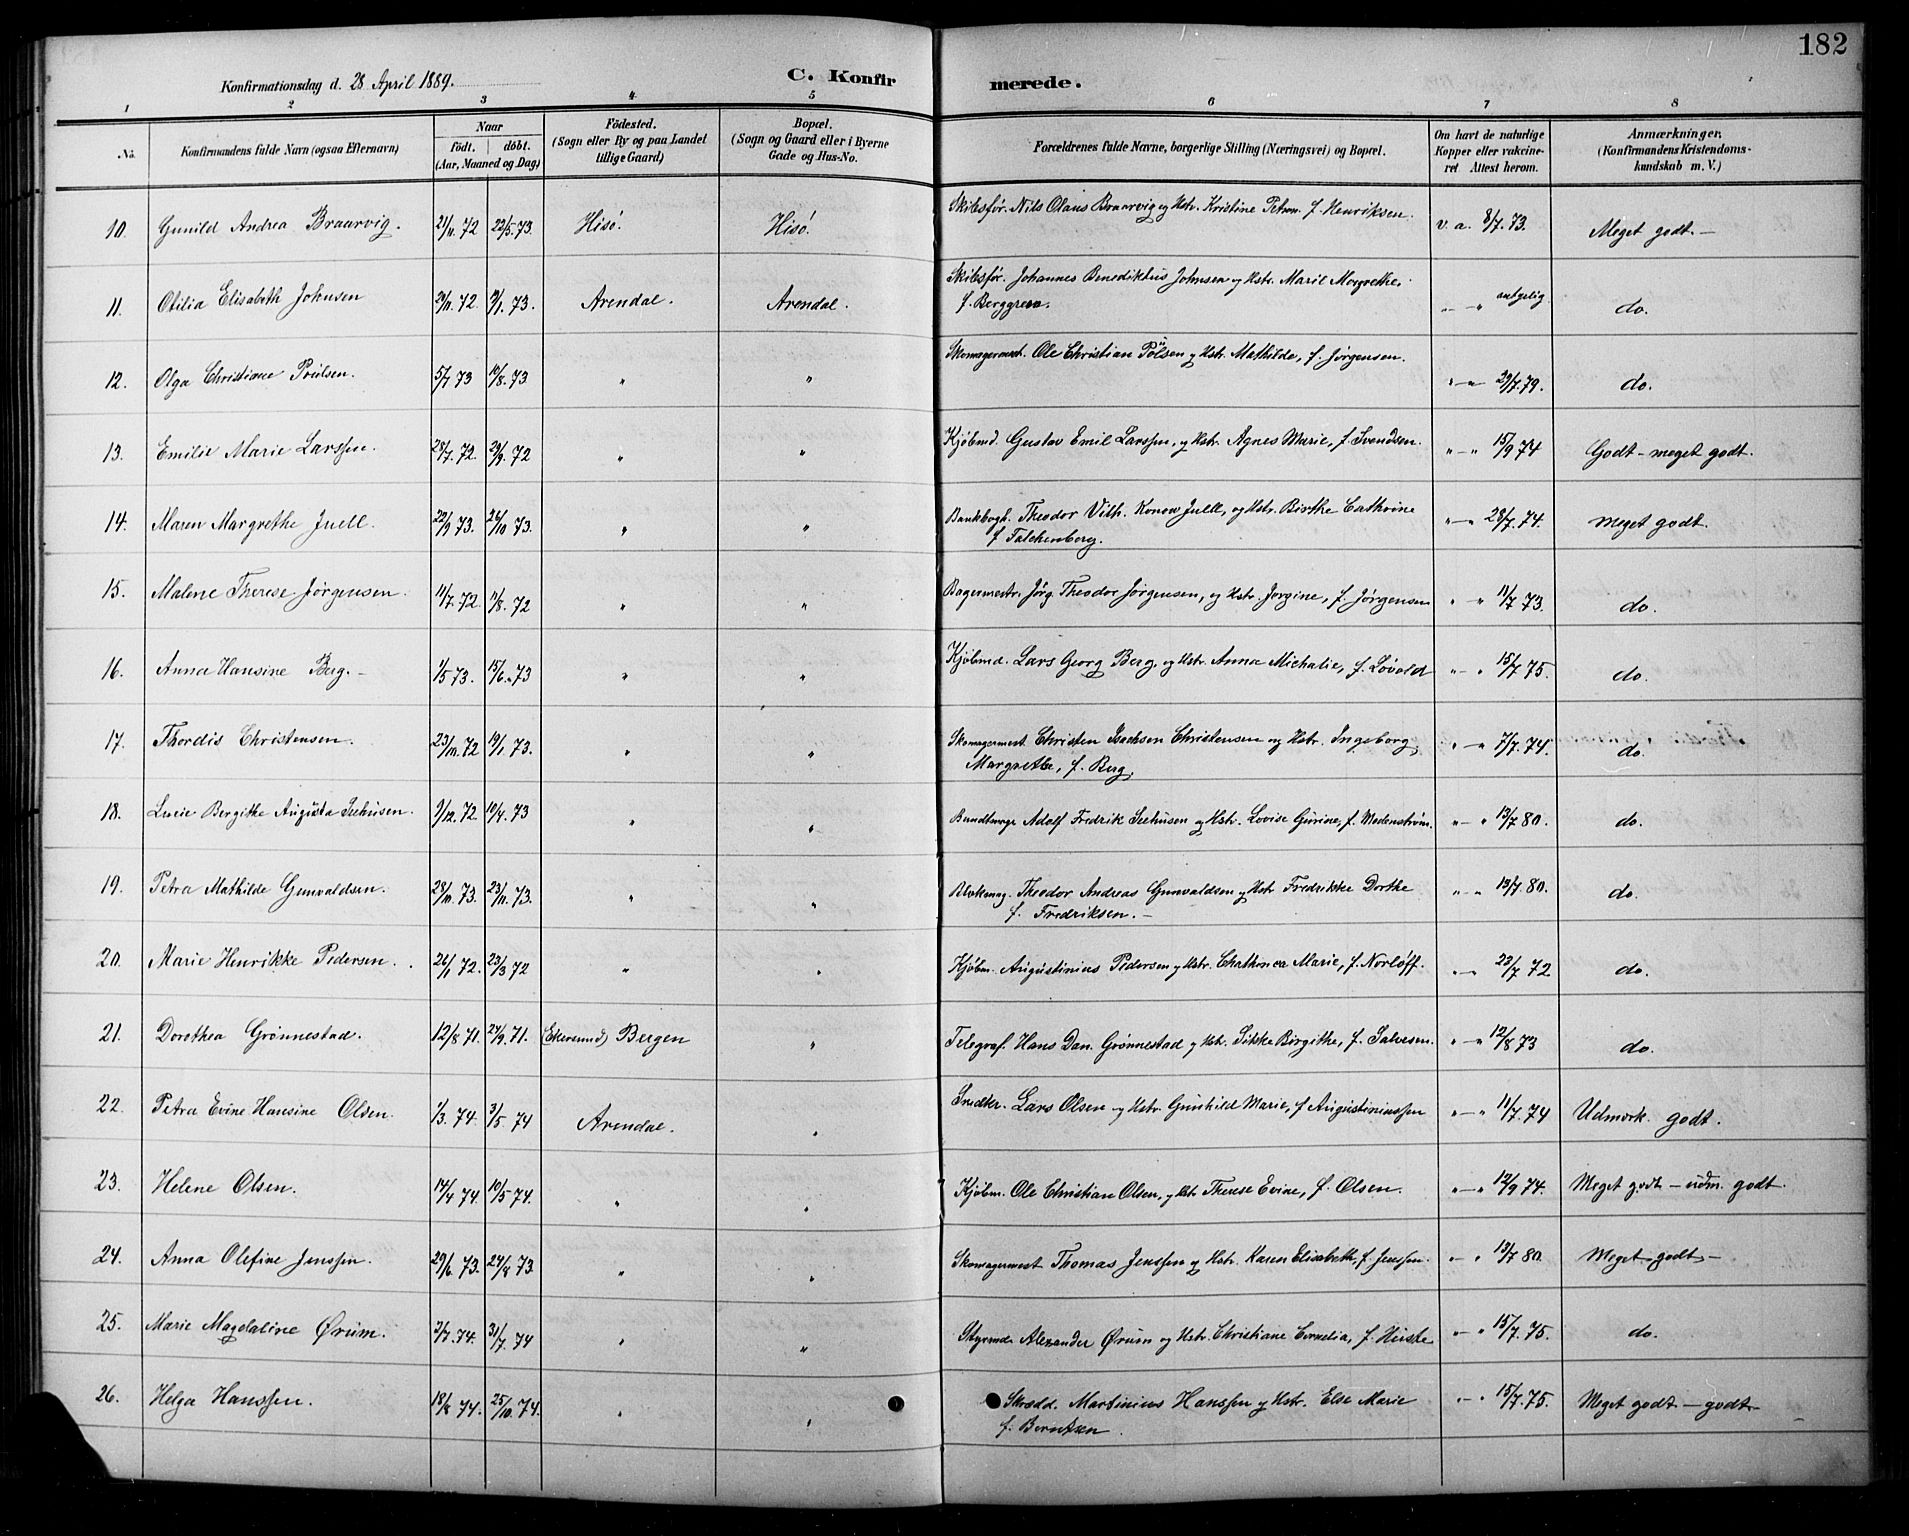 182
Konfirmationsdag d. 28 April 1889.
C. Konfirmerede.
1 2 3 4 5 6 7 8
No. Konfirmandens fulde Navn (ogsaa Efternavn) Naar födt. döbt. (Aar, Maaned og Dag) Födested. (Sogn eller By og paa Landet tillige Gaard) Bopæl. (Sogn og Gaard eller i Byerne Gade og Hus-No. Forældrenes fulde Navne, borgerlige Stilling (Næringsvei) og Bopæl. Om havt de naturlige Kopper eller vakcineret Attest herom. Anmærkninger. (Konfirmandens Kristendomskundskab m. V.)
10. Gunild Andrea Braarvig. 21/11 72 22/5 73. Hisö. Hisö. Skibsför. Nils Olaus Braarvig og Hstr. Kristine Petron. f. Henriksen. v. a. 8/7. 73. Meget godt. —
11. Otilia Elisabeth Johnsen 72 9/1. 73. Arendal. Arendal. Skibsför. Johannes Benediktus Johnsen og Hstr. Marie Margrethe,
f. Berggreen. " — " do.
12. Olga Christiane Poülsen. 5/7 73 19/8. 73 " " Skomagermest. Ole Christian Pölsen og Hstr. Mathilde, f. Jörgensen. " — " 29/7. 79. do.
13. Emilie Marie Larssen. 28/7. 72. 29/9. 72 " " Kjöbmd. Gustav Emil Larssen, og Hstr. Agnes Marie, f. Svendsen. " — " 15/9 74 Godt - meget godt.
14. Maren Margrethe Juell. 22/9 73. 26/10 73. " " Bankbogh. Theodor Vilh. Konow Juell, og Hstr. Birthe Cathrine
f Falchenberg. " — " 28/7. 74. Meget godt.
15. Malene Therese Jörgensen. 11/7. 72. 11/8. 72 " " Bagermestr. Jörg. Theodor Jörgensen, og Hstr. Jorgine, f. Jörgensen " " 11/7 73. do.
16. Anna Hansine Berg. — 1/5 73. 15/6. 73 " " Kjöbmd. Lars Georg Berg, og Hstr. Anna Michalie, f. Lövold " — " 15/7 75. do.
17. Thordis Christensen. 23/11. 72 19/1. 73. " " Skomagermest. Christen Isachsen Christensen og Hstr. Ingeborg
Margrethe, f. Berg. " " 7/7. 74. do.
18. Lucie Bergithe Augusta Seehusen. 9/12. 72 10/4. 73 " " Bundtmager Adolf Fredrik Seehusen og Hstr. Lovise Gurine, f. Modenström. " — " 13/7 80. do.
19. Petra Mathilde Gunvaldsen. 73 23/11. 73. " " Blokmag. Theodor Andreas Gunvaldsen og Hstr Fredrikke Dorthe
f. Fredriksen. — " " 13/7 80. do.
20. Marie Henrikke Pedersen. 72. 23/3 72 " " Kjöbm. Augustinius Pedersen og Hstr. Marie, f. Norlöff. " — " 23/7 72 do.
21. Dorothea Grönnestad. 12/8 71. 24/9. 71. (Ekersund) Bergen " Telegraf. Hans Dan. Grönnestad og Hstr. Birgithe, f. Salvesen. " — " 12/8 73 do.
22. Petra Evine Hansine Olsen. 1/3. 74. 3/5 74 Arendal. " Snedker. Lars Olsen og Hstr. Gunhild Marie, f Augustiniussen " — " 11/7. 74 Udmærk. godt.
23. Helene Olsen. 14/4 74. 10/5 74. " " Kjöbm. Ole Christian Olsen, og Hstr Therese Evine, f. Olsen. " — " 12/9 74. Meget godt — udm. godt.
24. Anna Olefine Jenssen. 29/6. 73. 24/8 73. " " Skomagermest Thomas Jenssen og Hstr. Karen Elisabeth, f. Jenssen. " — " 13/7 80. Meget godt. —
25. Marie Magdaline Ørum. 2/7. 74. 31/7. 74 " " Styrmd. Alexander Ørum og Hstr. Christiane Cornelia, f. " — " 15/7. 75. do.
26. Helga Hanssen. 18/8 74. 25/10. 74. " " Skrædd. Martinius Hanssen og Hstr. Else Marie
f. Berntsen. " — " 15/7. 75. Meget godt — godt